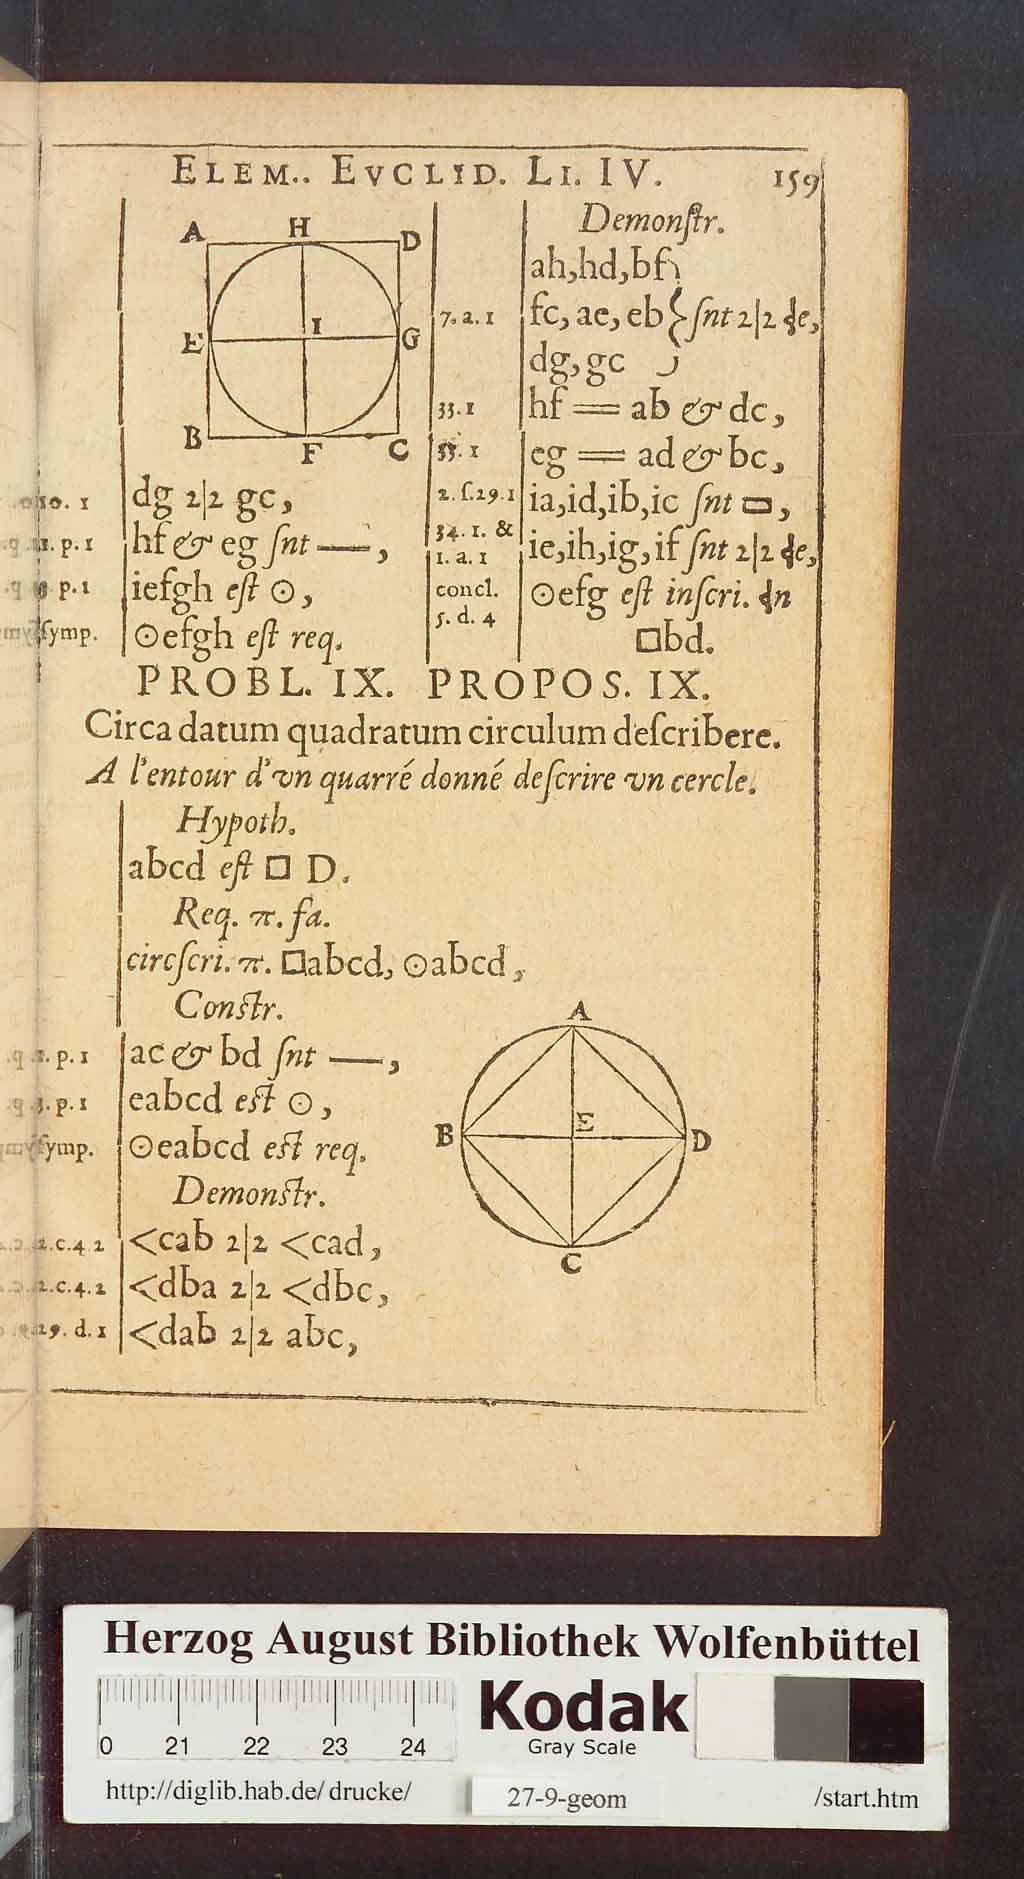 ELEM.. EVCLID. LI. IV. 159
A H D
E I G
B F C
10. 1 dg 2|2 gc,
1. p. 1 hf & eg ſnt —,
3. p. 1 iefgh eſt ⊙,
ſymp. ⊙efgh eſt req.
Demonſtr.
ah,hd,bf
7. a. 1 fc, ae, eb } ſnt 2|2 ɖe,
dg, gc
33. 1 hf == ab & dc,
33. 1 eg == ad & bc,
2. ſ.29.1 ia,id,ib,ic ſnt ▭,
34. 1. & ie,ih,ig,if ſnt 2|2 ɖe,
1. a. 1
concl. ⊙efg eſt inſcri. ɖn
5. d. 4 □bd.
PROBL. IX. PROPOS. IX.
Circa datum quadratum circulum deſcribere.
A l'entour d'vn quarré donné deſcrire vn cercle.
Hypoth.
abcd eſt □ D.
Req. π. fa.
circſcri. π. □abcd, ⊙abcd,
Conſtr.
1. p. 1 ac & bd ſnt —,
3. p. 1 eabcd eſt ⊙,
ſymp. ⊙eabcd eſt req.
A
B E D
C
Demonſtr.
2.c.4.2 <cab 2|2 <cad,
2.c.4.2 <dba 2|2 <dbc,
29. d. 1 <dab 2|2 abc,
Herzog August Bibliothek Wolfenbüttel
Kodak
Gray Scale
0 21 22 23 24
http://diglib.hab.de/drucke/ 27-9-geom /start.htm